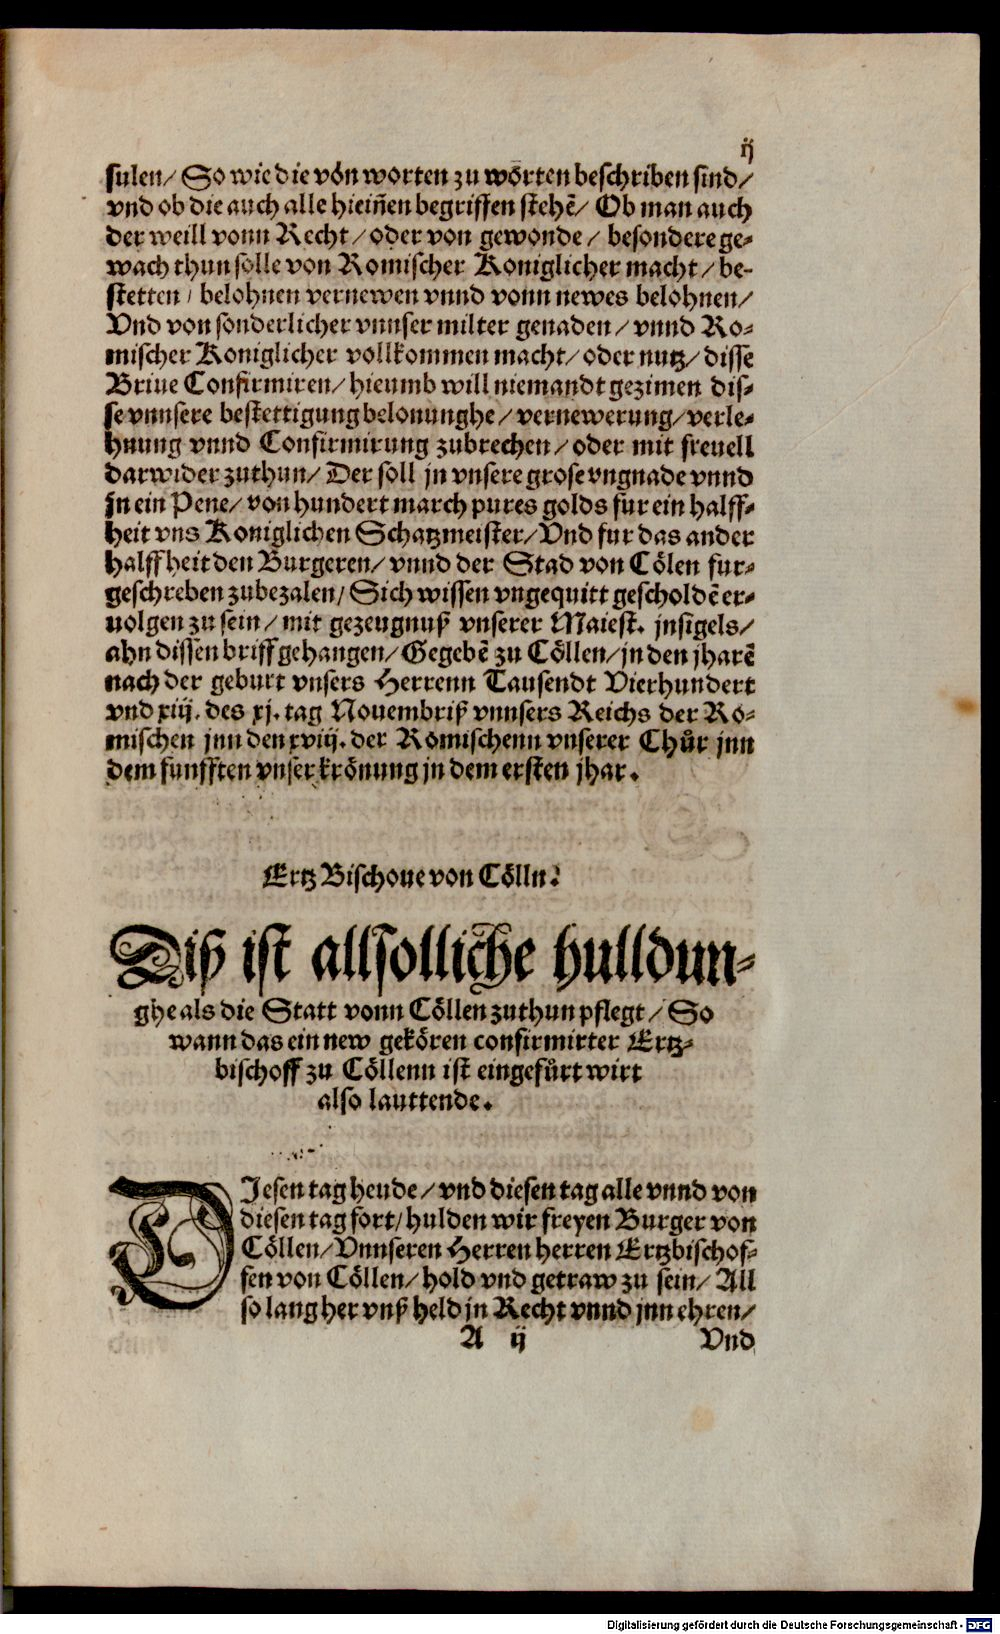 ij
sulen/ So wie die võn worten zu wõrten beschriben sind/
vnd ob die auch alle hieiñen begriffen stehẽ/ Ob man auch
der weill vonn Recht/ oder von gewonde/ besondere ge-
wach thun solle von Romischer Koniglicher macht/ be-
stetten/ belohnen vernewen vnnd vonn newes belohnen/
Vnd von sonderlicher vnnser milter genaden/ vnnd Ro-
mischer Koniglicher vollkommen macht/ oder nutz/ disse
Briue Confirmiren/ hieumb will niemandt gezimen dis-
se vnnsere bestettigung belonunghe/ vernewerung/ verle-
hnung vnnd Confirmirung zubrechen/ oder mit freuell
darwider zuthun/ Der soll jn vnsere grose vngnade vnnd
jn ein Pene/ von hundert march pures golds fur ein halff-
heit vns Koniglichen Schatzmeister/ Vnd fur das ander
halffheit den Burgeren/ vnnd der Stad von Cölen fur-
geschreben zubezalen/ Sich wissen vngequitt gescholdẽ er-
uolgen zu sein/ mit gezeugnuß vnserer Maiest. jnsigels/
ahn dissen briff gehangen/ Gegebẽ zu Cöllen/ jn den jharẽ
nach der geburt vnsers Herrenn Tausendt Vierhundert
vnd xiij. des xj. tag Nouembriß vnnsers Reichs der Ro-
mischen jnn den xviij. der Romischenn vnserer Chůr jnn
dem funfften vnser krönung jn dem ersten jhar.
Ertz Bischoue von Cölln.
Diß ist allsolliche hulldun-
ghe als die Statt vonn Cöllen zuthun pflegt/ So
wann das ein new gekören confirmirter Ertz-
bischoff zu Cöllenn ist eingefůrt wirt
also lauttende.
DIesen tag heude/ vnd diesen tag alle vnnd von
diesen tag fort/ hulden wir freyen Burger von
Cöllen/ Vnnseren Herren herren Ertzbischof-
fen von Cöllen/ hold vnd getraw zu sein/ All
so lang her vnß held jn Recht vnnd jnn ehren/
A ij Vnd
Digitalisierung gefördert durch die Deutsche Forschungsgemeinschaft - DFG